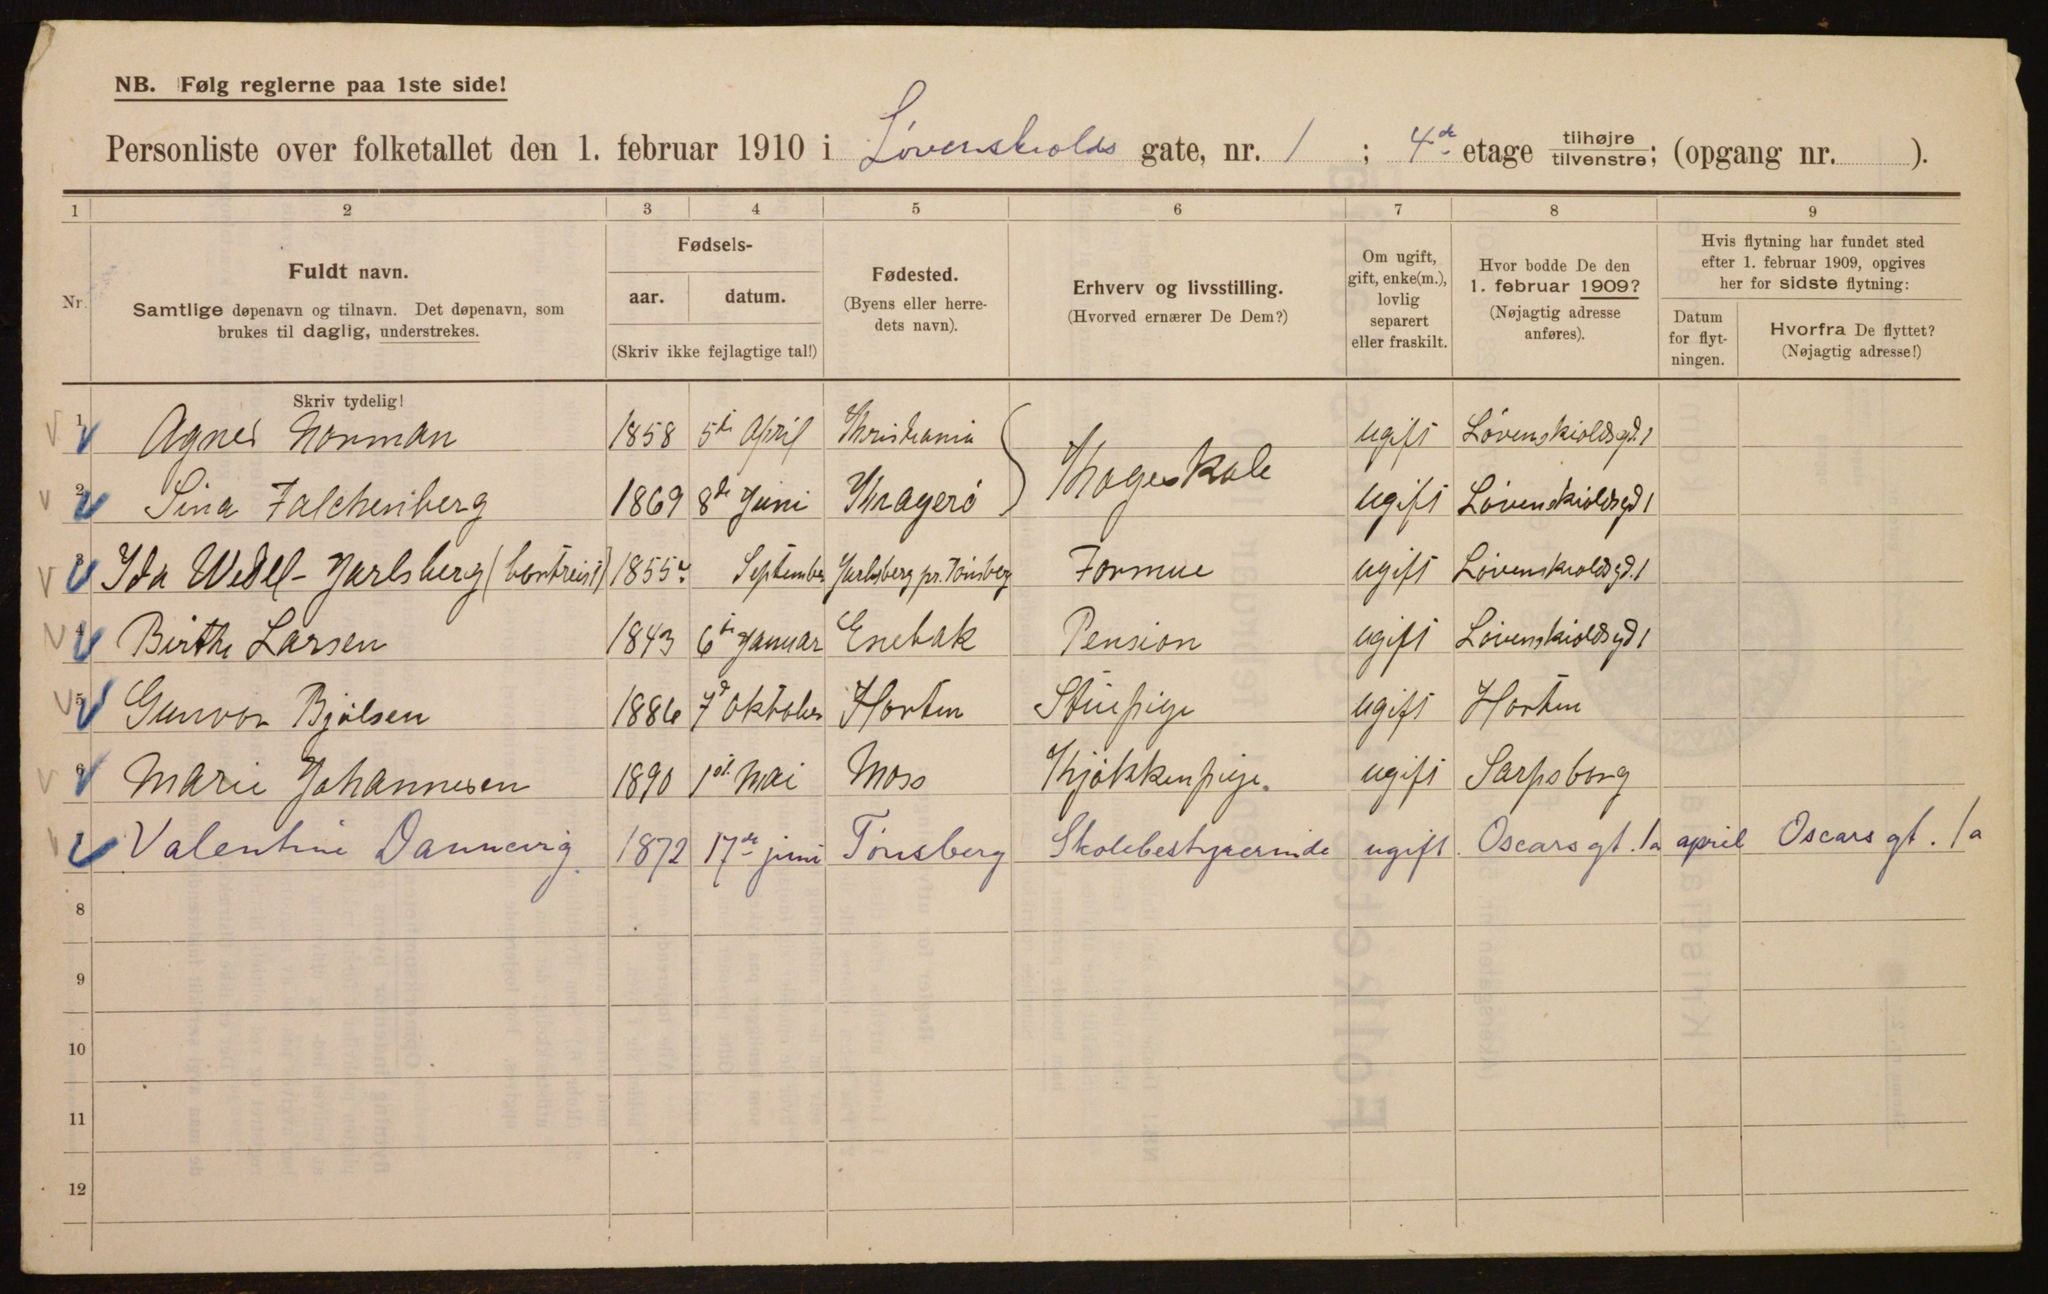 NB. Følg reglerne paa 1ste side!
Personliste over folketallet den 1. februar 1910 i Løvenskiolds gate, nr. 1 ; 4de etage tilhøjre tilvenstre; (opgang nr. ).
1 2 3 4 5 6 7 8 9
Nr.
Fuldt navn.
Samtlige døpenavn og tilnavn. Det døpenavn, som
brukes til daglig, understrekes.
Fødsels-
aar. datum.
(Skriv ikke fejlagtige tal!)
Fødested.
(Byens eller herre-
dets navn).
Erhverv og livsstilling.
(Hvorved ernærer De Dem?)
Om ugift,
gift, enke(m.),
lovlig
separert
eller fraskilt.
Hvor bodde De den
1. februar 1909?
(Nøjagtig adresse
anføres).
Hvis flytning har fundet sted
efter 1. februar 1909, opgives
her for sidste flytning:
Datum
for flyt-
ningen.
Hvorfra De flyttet?
(Nøjagtig adresse!)
Skriv tydelig!
1 Agnes Norman 1858 5te April Khristiania ugift Løvenskioldsgd. 1
Khogeskole
2 Sina Falchenberg 1869 8de Juni Khragerö ugift Løvenskioldsgd 1
3 Ida Wedel-Jarlsberg (bortreist) 1855 September Jarlsberg pr. Tønsberg Formue ugift Løvenskioldsgd. 1
4 Birthe Larsen 1843 6te Januar Enebak Pension ugift Løvenskioldsgd 1
5 Gunvor Bjølsen 1886 7de Oktober Horten Stuepige ugift Horten
6 Marie Johannesen 1890 1ste Mai Moss Khjøkkenpige. ugift Sarpsborg
Valentine Dannevig 1872 17de juni Tønsberg Skolebestyrerinde ugift Oscars gt. 1a april Oscars gt. 1a
8
9
10
11
12